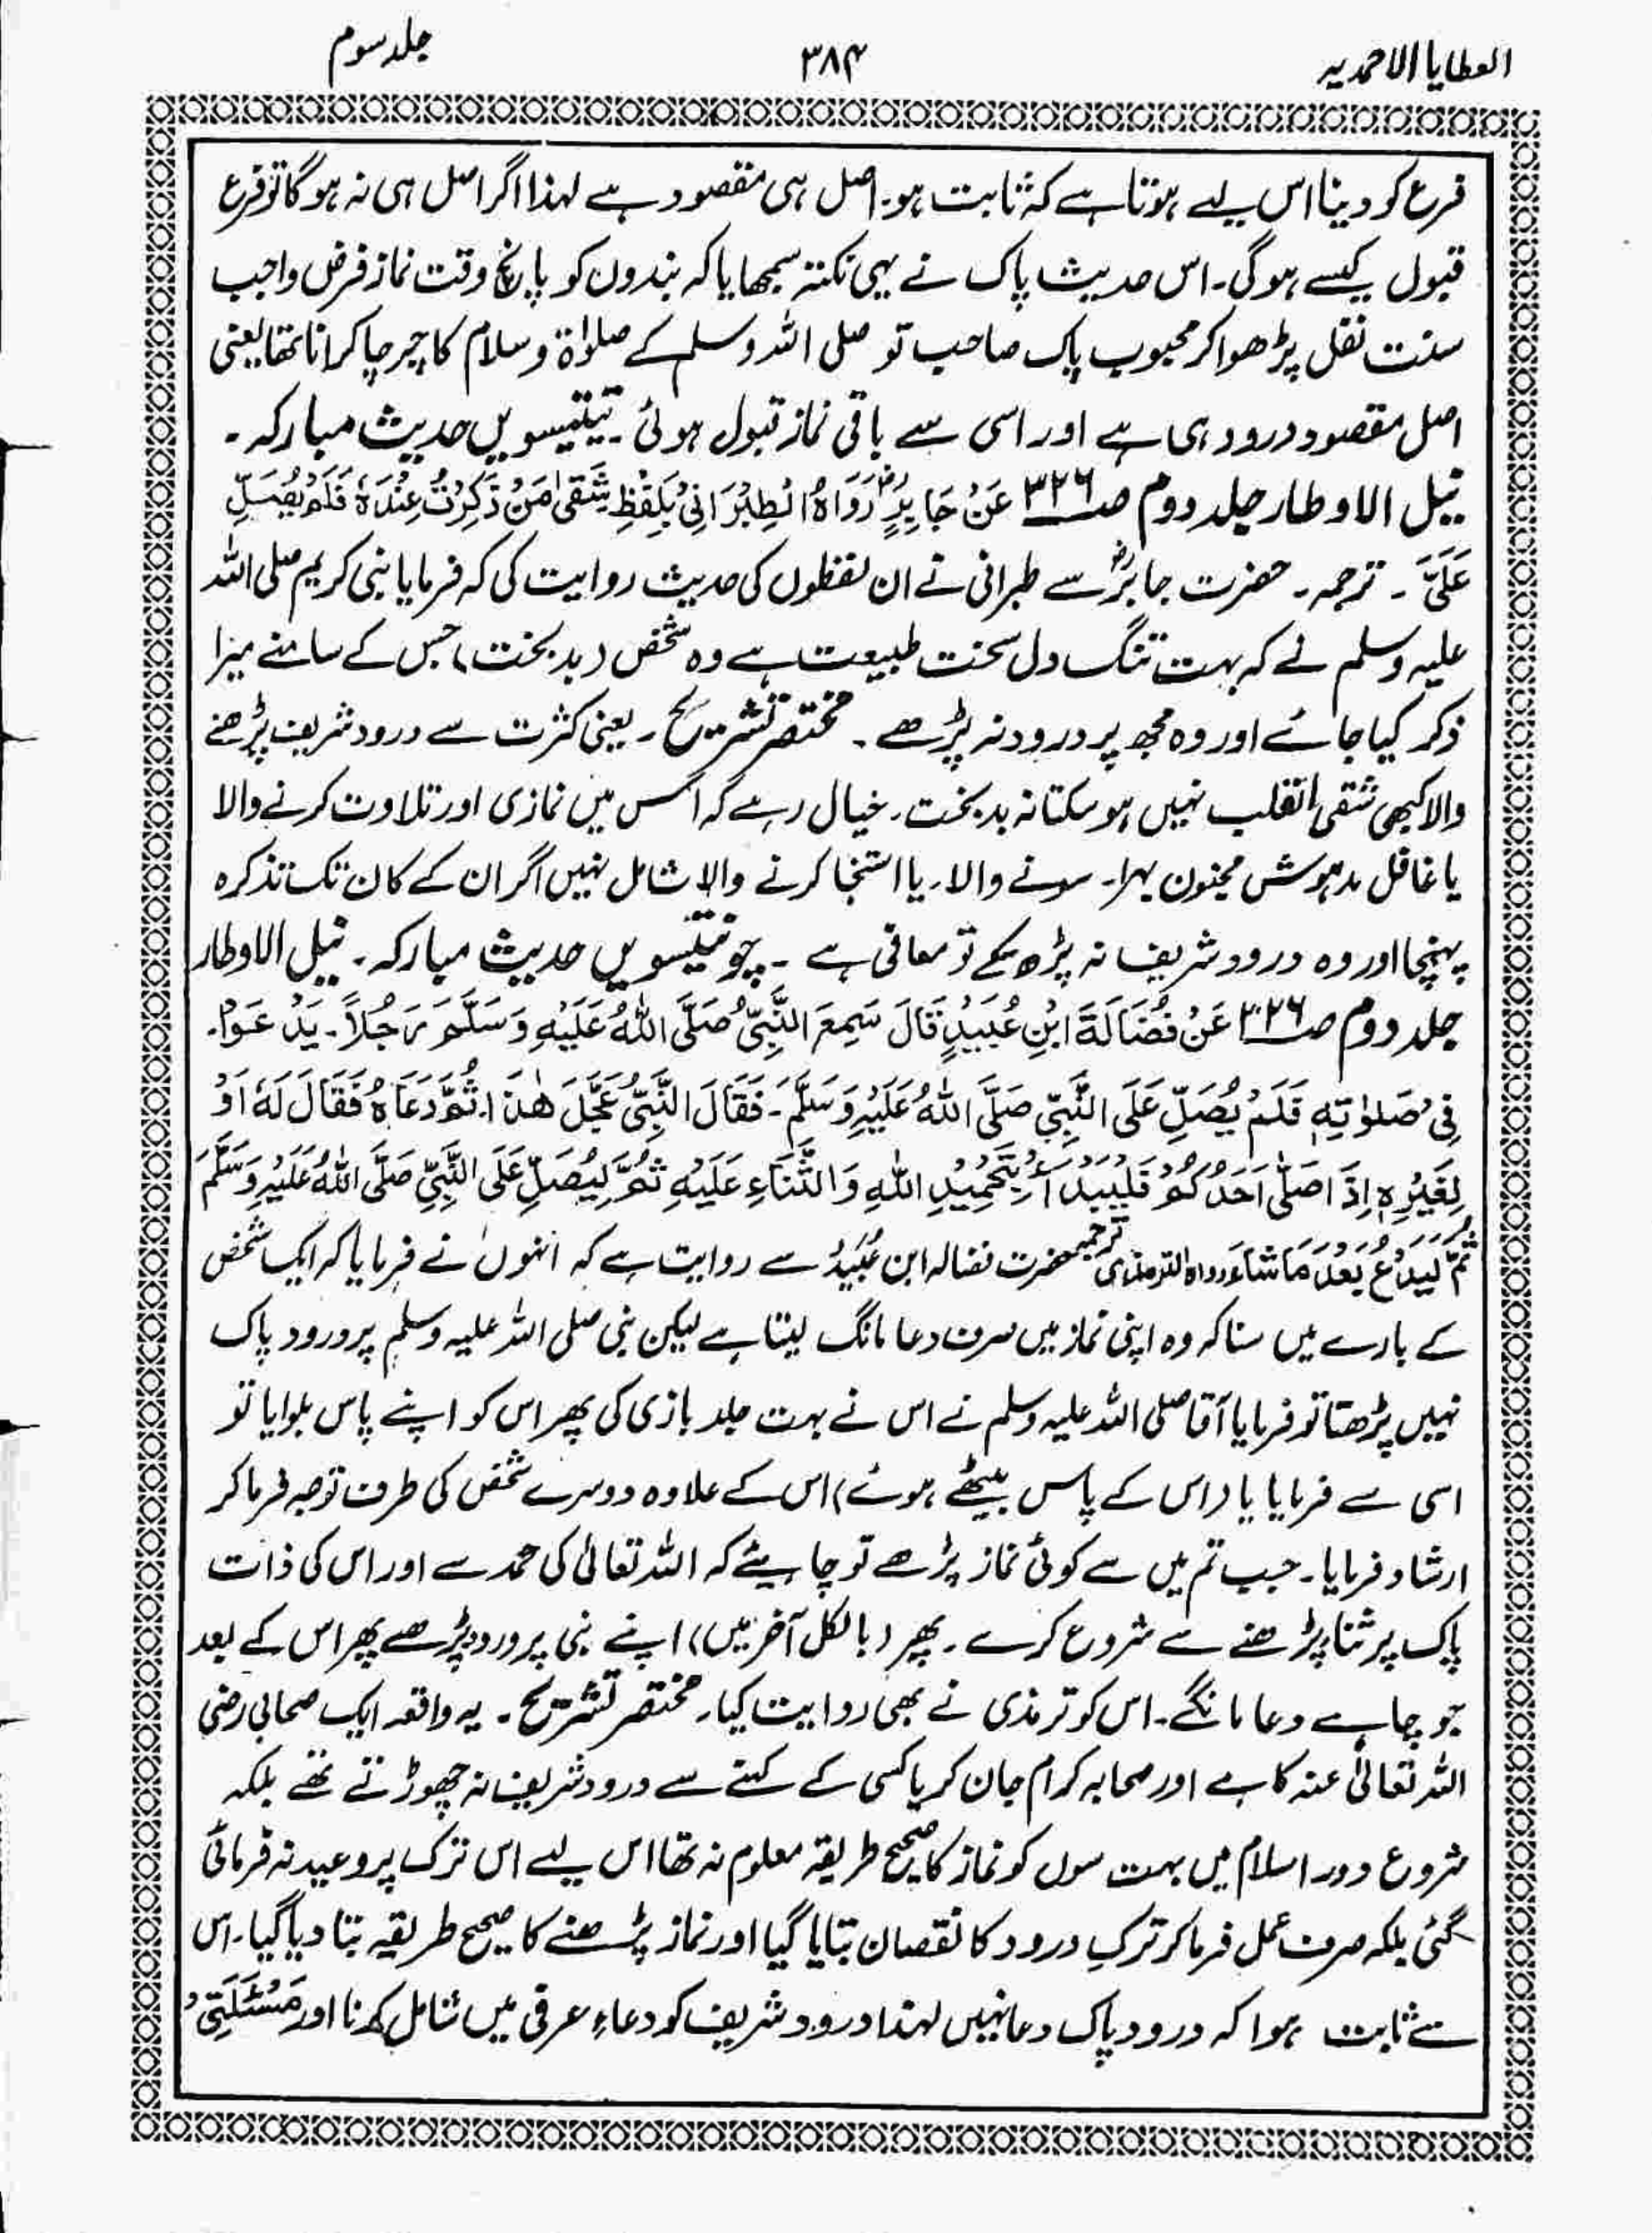 العطایا الاحمدیہ
۳۸۴
جلد سوم
فرع کو دینا اس لیے ہوتا ہے کہ ثابت ہو۔ اصل ہی مقصود ہے لہذا اگر اصل ہی نہ ہوگا تو فرع
قبول کیسے ہوگی۔ اس حدیث پاک نے یہی نکتہ سمجھایا کہ بندوں کو پانچ وقت نماز فرض واجب
سنت نفل پڑھوا کر محبوب پاک صاحب تو صلی اللہ وسلم کے صلوٰۃ و سلام کا چرچا کرانا تھا یعنی
اصل مقصود درود ہی ہے اور اسی سے باقی نماز قبول ہوئی۔ تینتیسویں حدیث مبارکہ۔
نیل الاوطار جلد دوم صـ۳۲۶ عَنْ جَابِرٍؓ رَوَاہُ الطِبْرَانِیْ بِلَفْظِ شَقٰی مَنْ ذَکِرْتُ عِنْدَہٗ فَلَمْ یُصَلِّ
عَلَیَّ ۔ ترجمہ۔ حضرت جابرؓ سے طبرانی نے ان لفظوں کی حدیث روایت کی کہ فرمایا نبی کریم صلی اللہ
علیہ وسلم نے کہ بہت تنگ دل سخت طبیعت ہے وہ شخص (بدبخت) جس کے سامنے میرا
ذکر کیا جائے اور وہ مجھ پر درود نہ پڑھے ۔ مختصر تشریح ۔ یعنی کثرت سے درود شریف پڑھنے
والا کبھی شقی القلب نہیں ہوسکتا نہ بدبخت۔ خیال رہے کہ اس میں نمازی اور تلاوت کرنے والا
یا غافل مدہوش مجنون بہرا۔ سونے والا۔ یا استنجا کرنے والا شامل نہیں اگر ان کے کان تک تذکرہ
پہنچا اور وہ درود شریف نہ پڑھ سکے تو معافی ہے ۔ چونتیسویں حدیث مبارکہ۔ نیل الاوطار
جلد دوم صـ۳۲۶ عَنْ فُضَالَۃَ ابْنِ عُبَیْدٍ قَالَ سَمِعَ النَّبِیُّ صَلَّی اللہُ عَلَیْہِ وَسَلَّمَ رَجُلاً۔ یَدْعَوْا۔
فِیْ صَلوٰتِہٖ فَلَمْ یُصَلِّ عَلَی النَّبِیِّ صَلَّی اللہُ عَلَیْہِ وَسَلَّمَ۔ فَقَالَ النَّبِیُّ عَجَّلَ ھٰذَا۔ ثُمَّ دَعَاہُ فَقَالَ لَہٗ اَوْ
لِغَیْرِہٖ اِذَا صَلّٰی اَحَدُکُمْ فَلْیَبْدَأْ بِتَحْمِیْدِ اللہِ وَالثَّنَاءِ عَلَیْہِ ثُمَّ لِیُصَلِّ عَلَی النَّبِیِّ صَلَّی اللہُ عَلَیْہِ وَسَلَّمَ
ثُمَّ لْیَدْعُ بَعْدَ مَا شَاءَ رواہ الترمذی ترجمہ حضرت فضالہ ابن عُبَیْدؓ سے روایت ہے کہ انہوں نے فرمایا کہ ایک شخص
کے بارے میں سنا کہ وہ اپنی نماز میں صرف دعا مانگ لیتا ہے لیکن نبی صلی اللہ علیہ وسلم پر درود پاک
نہیں پڑھتا تو فرمایا آقا صلی اللہ علیہ وسلم نے اس نے بہت جلد بازی کی پھر اس کو اپنے پاس بلوایا تو
اسی سے فرمایا یا (اس کے پاس بیٹھے ہوئے) اس کے علاوہ دوسرے شخص کی طرف توجہ فرما کر
ارشاد فرمایا۔ جب تم میں سے کوئی نماز پڑھے تو چاہیئے کہ اللہ تعالیٰ کی حمد سے اور اس کی ذات
پاک پر ثنا پڑھنے سے شروع کرے ۔ پھر (بالکل آخر میں) اپنے نبی پر درود پڑھے پھر اس کے بعد
جو چاہے دعا مانگے۔ اس کو ترمذی نے بھی روایت کیا۔ مختصر تشریح ۔ یہ واقعہ ایک صحابی رضی
اللہ تعالیٰ عنہ کا ہے اور صحابہ کرام جان کر یا کسی کے کہنے سے درود شریف نہ چھوڑتے تھے بلکہ
شروع دور اسلام میں بہت سوں کو نماز کا صحیح طریقہ معلوم نہ تھا اس لیے اس ترک پر وعید نہ فرمائی
گئی بلکہ صرف عمل فرما کر ترکِ درود کا نقصان بتایا گیا اور نماز پڑھنے کا صحیح طریقہ بتا دیا گیا۔ اس
سے ثابت ہوا کہ درود پاک دعا نہیں لہذا درود شریف کو دعاءِ عرفی میں شامل کرنا اور مَسْئَلَتِیْ